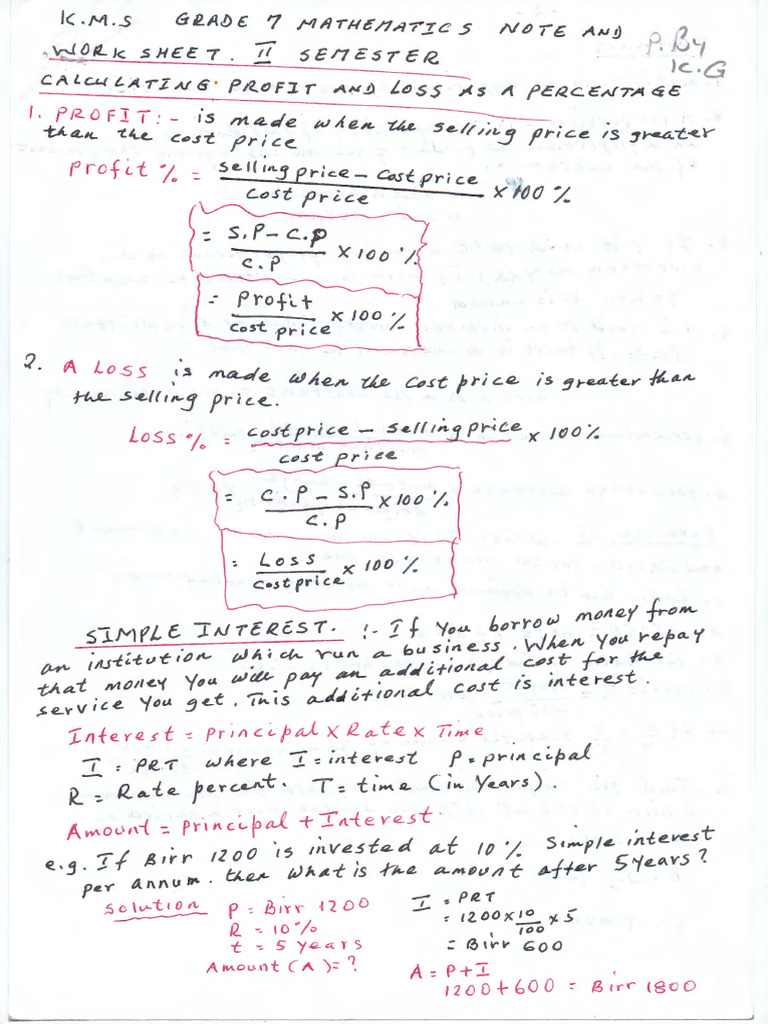 K.M.S GRADE 7 MATHEMATICS NOTE AND
WORK SHEET. II SEMESTER
P. By
K.G
CALCULATING PROFIT AND LOSS AS A PERCENTAGE
1. PROFIT:- is made when the selling price is greater
than the cost price
Profit % = selling price - cost price / cost price × 100 %
= S.P - C.P / C.P × 100 %
= Profit / cost price × 100 %
2. A LOSS is made when the cost price is greater than
the selling price.
LOSS % = cost price - selling price / cost price × 100 %
= C.P - S.P / C.P × 100 %
= Loss / cost price × 100 %
SIMPLE INTEREST. :- If you borrow money from
an institution which run a business. When you repay
that money you will pay an additional cost for the
service you get. This additional cost is interest.
Interest = principal × Rate × Time
I = PRT where I = interest P = principal
R = Rate percent. T = time (in years).
Amount = principal + Interest
e.g. If Birr 1200 is invested at 10 % simple interest
per annum. then what is the amount after 5 years?
Solution P = Birr 1200
R = 10 %
t = 5 years
Amount (A) = ?
I = PRT
= 1200 × 10/100 × 5
= Birr 600
A = P + I
1200 + 600 = Birr 1800